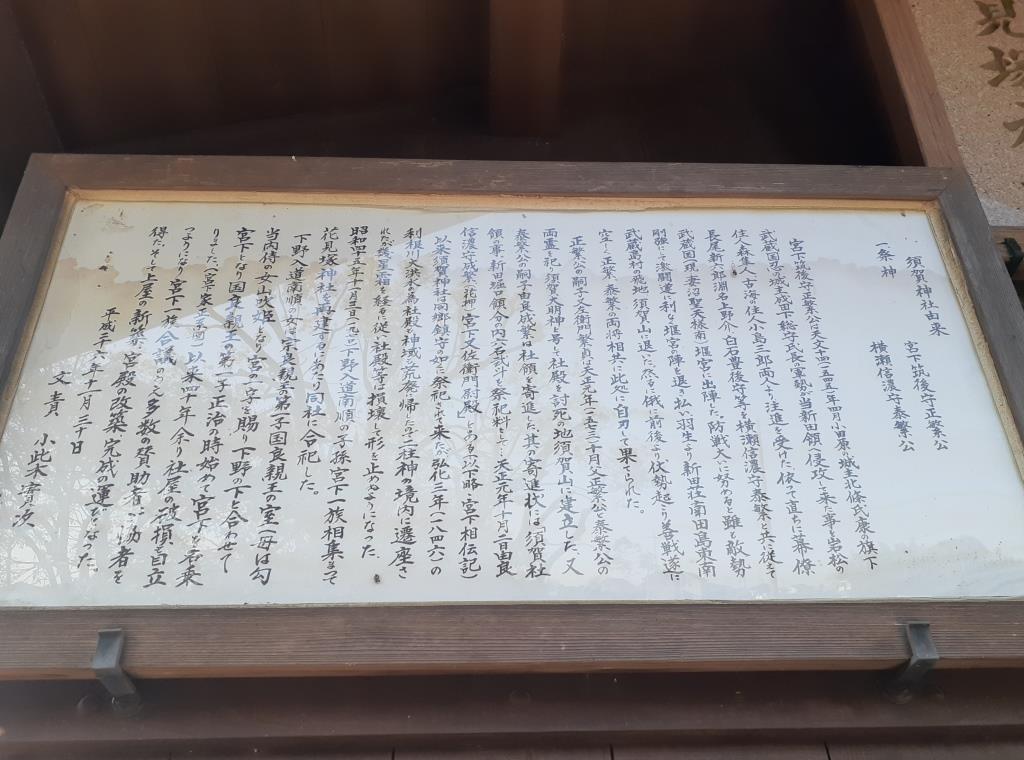 見塚
須賀神社由来
一祭神 宮下筑後守正繁公
横瀬信濃守泰繁公
宮下筑後守正繁公は天文十四(一五四五)年四月小田原の城主北條氏康の旗下
武蔵国忍の城主成田下総守氏長の軍勢が当新田領に侵攻して来た事を岩松の
住人森隼人、古海の住人小島三郎両人より注進を受けた、依て直ちに幕僚
長尾新六郎渕名上野介、白石豊後守等を横瀬信濃守泰繁と共に従えて
武蔵国現・妻沼聖天様南、堰宮に出陣した、防戦大いに努めると雖も敵勢
剛強にして激闘運に利なく堰宮陣を退き払い羽生より新田荘南田島東南
武蔵島村の飛地須賀山に退いた、然るに俄に前後より伏勢起こり善戦遂に
空しく正繁、泰繁の両将相共に此処に自刃して果てられた。
正繁公の嗣子又左衛門繁貞は天正元年(一五七三)十月父正繁公、泰繁公の
両霊を祀り須賀大明神と号して社殿を討死の地須賀山に建立した、又
泰繁公の嗣子由良成繁は社領を寄進した、其の寄進状には「須賀社
領の事、新田堀口領分の内六石弐斗を祭祀料として…天正元年十月二日由良
信濃守成繁(花押)宮下又佐衛門尉殿」とある(以下略・宮下相伝記)
以来須賀神社は同郷鎮守の如く祭祀されて来たが弘化三年(一八四六)の
利根川大洪水の為社殿も神域も荒廃に帰したので二柱神の境内に遷座さ
れたが幾星霜を経るに従い社殿等も損壊して形を止めぬようになった、
昭和四十五年十一月三日(一九七〇)下野入道南順の子孫宮下一族相集まって
花見塚神社を再建するにあたり同社に合祀した。
下野入道南順の次男は宗良親王第二子国良親王の室(母は勾
当内侍の女)山吹姫となり、宮一字を賜り下野の下と合わせて
宮下となり国良親王の第二子正治の時始めて宮下と名乗
りました。(宮下家正系図)以来四十年余り社屋の破損も目立
つようになり宮下一族合議ののうえ多数の賛助者に協力者を
得た、そして上屋の新築、宮殿の改築完成の運びとなった。
平成二十六年十一月三十日
文責 小此木実次